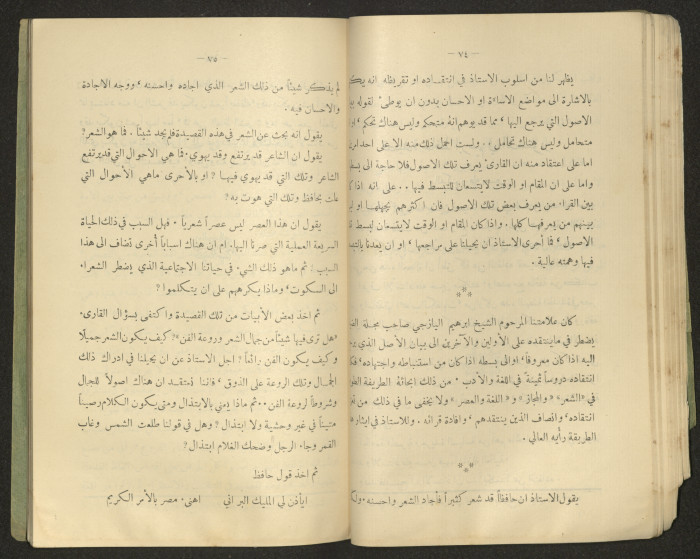 — ٧٤ —
يظهر لنا من اسلوب الاستاذ في انتقـاده او تقريظه انه
بالاشارة الى مواضع الاساءة او الاحسان بدون ان يوطئ لقوله
الاصول التي يرجع اليها ، مما قد يوهم انه متحكم وليس هناك تحكم ،
متحامل وليس هناك تحامل ،. ولست احمل ذلك منه الا على احد
اما على اعتقاد منه ان القارئ يعرف تلك الاصول فلا حاجة الى
واما على ان المقام او الوقت لا يتسعان للتبسط فيها .. على انه اذا
بين القراء من يعرف بعض تلك الاصول فان اكثرهم يجهلها او
بينهم من يعرفها كلها . واذا كان المقام او الوقت لا يتسعان لبسط
الاصول ، فما أحرى الاستاذ ان يحيلنا على مراجعها ، او ان يعدنا
فيها وهمته عالية .
⁂
كان علامتنا المرحوم الشيخ ابرهيم اليازجي صاحب مجلة
يضطر في ما ينتقده على الأولين والآخرين الى بيان الأصل الذي
اليه اذا كان معروفاً ، او الى بسطه اذا كان من استنباطه واجتهاده ،
انتقاده دروساً ثمينة في اللغة والأدب . من ذلك ابحاثه الطريفة
في «الشعر» و «المجاز» و « اللغة والعصر » ولا يخفى ما في ذلك من
انتقاده ، وانصاف الذين ينتقدهم ، وافادة قرائه . وللاستاذ في ايثار
الطريقة رأيه العالي .
⁂
يقول الاستاذ ان حافظاً قد شعر كثيراً فأجاد الشعر واحسنه
— ٧٥ —
لم يذكر شيئاً من ذلك الشعر الذي اجاده واحسنه ، ووجه الاجادة
والاحسان فيه .
يقول انه بحث عن الشعر في هذه القصيدة فلم يجد شيئاً . فما هو الشعر؟
يقول ان الشاعر قد يرتفع وقد يهوي . فما هي الاحوال التي قد يرتفع
الشاعر وتلك التي قد يهوي فيها ؟ او بالأحرى ماهي الأحوال التي
علت بحافظ وتلك التي هوت به ؟
يقول ان هذا العصر ليس عصراً شعرياً . فهل السبب في ذلك الحياة
السريعة العملية التي صرنا اليها. ام ان هناك اسباباً أخرى تضاف الى هذا
السبب ؛ ثم ماهو ذلك الشيء في حياتنا الاجتماعية الذي يضطر الشعراء
الى السكوت ، وماذا يكرههم على ان يتكلموا ؟
ثم اخذ بعض الأبيات من تلك القصيدة واكتفى بسؤال القارئ
«هل ترى فيها شيئاً من جمال الشعر وروعة الفن»؟ كيف يكون الشعر جميلاً
وكيف يكون الفن رائعاً ؟ اجل الاستاذ عن ان يحيلنا في ادراك ذلك
الجمال وتلك الروعة على الذوق ، فاننا نعتقد ان هناك اصولاً للجمال
وشروطاً لروعة الفن .. ثم ماذا يعني بالابتذال ومتى يكون الكلام رصيناً
متيناً في غير وحشية ولا ابتذال ؟ وهل في قولنا طلعت الشمس وغاب
القمر وجاء الرجل وضحك الغلام ابتذال ؟
ثم اخذ قول حافظ
ايأذن لي المليك البر اني اهنئ مصر بالأمر الكريم